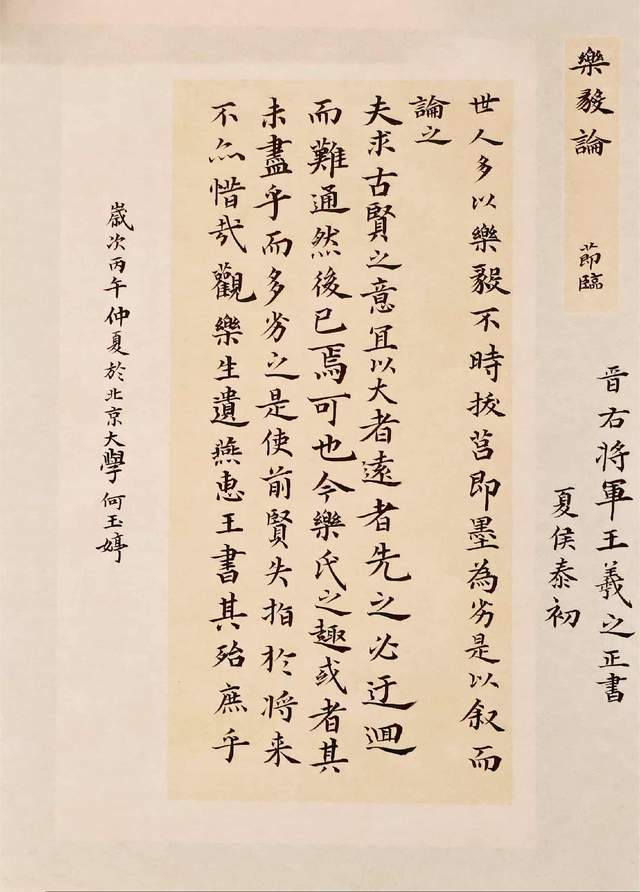 樂毅論
節臨
晉右將軍王羲之正書
夏侯泰初
世人多以樂毅不時拔莒即墨為劣是以叙而
論之
夫求古賢之意冝以大者遠者先之必迂迴
而難通然後已焉可也今樂氏之趣或者其
未盡乎而多劣之是使前賢失指於將来
不亦惜哉觀樂生遺燕惠王書其殆庶乎
歲次丙午仲夏於北京大學何玉婷